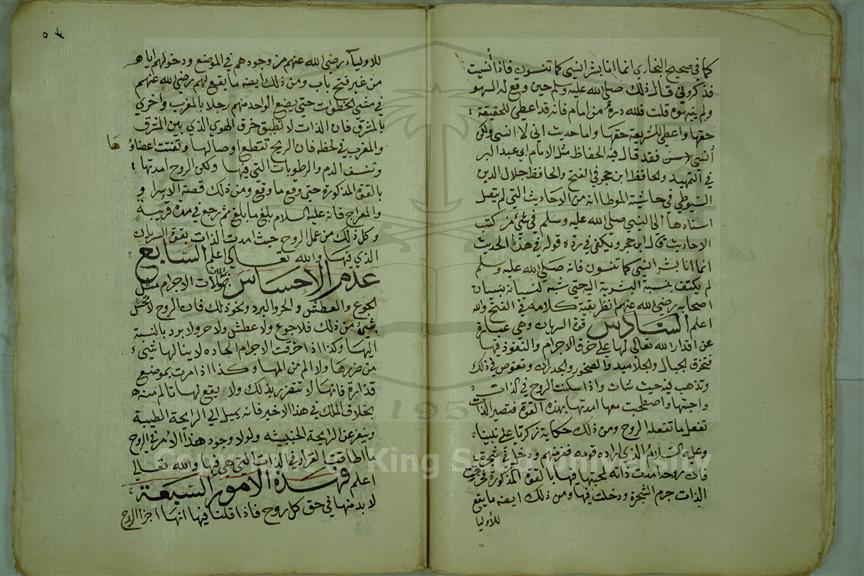 كما في صحيح البخاري انما انا بشر انسى كما تنسون فاذا نسيت
فذكروني قال ذلك صلى الله عليه وسلم حين وقع له السهو
ولم ينبهوه قلت فلله دره من امام فانه قد اعطى للحقيقة
حقها واعطى للشريعة حقها واما حديث اني لا انسى ولكن
أنسى لاسن فقد قال فيه الحفاظ مثل الامام ابي عبد البر
في التمهيد والحافظ ابن حجر في الفتح والحافظ جلال الدين
السيوطي في حاشية الموطا انه من الاحاديث التي لم يتصل
اسنادها الى النبي صلى الله عليه وسلم في شيء من كتب
الاحاديث قال ابن حجر ويكفي في رده قوله في هذا الحديث
انما انا بشر انسى كما تنسون فانه صلى الله عليه وسلم
لم يكتف بنسبة البشرية اليه حتى شبه نسيانه بنسيان
اصحابه رضي الله عنهم انظر بقية كلامه في الفتح والله
اعلم السادس قوة السريان وهي عبارة
عن اقدار الله تعالى لها على خرق الاجرام والنفوذ فيها
فتخرق الجبال والجلاميد والصخور والجدران وتغوص في ذلك
وتذهب فيه حيث شات واذا سكنت الروح في الذات
واحبتها واصطحبت معها امدتها بهذه القوة فتصير الذات
تفعل ما تفعله الروح ومن ذلك حكاية زكريا على نبينا
وعليه السلام الذي اراده قومه ففر منهم ودخل في شجرة
فان روحه امدت ذاته لمحبتها فيها بالقوة المذكورة فخرقت
الذات جرم الشجرة ودخلت فيها ومن ذلك ايضا ما يقع
للاوليا
للاولياء رضي الله عنهم من وجودهم في الموضع ودخولهم اياه
من غير فتح باب ومن ذلك ايضا ما يقع لهم رضي الله عنهم
في مشي الخطوات حتى يضع الواحد منهم رجلا بالمغرب واخرى
بالمشرق فان الذات لا تطيق خرق الهوي الذي بين المشرق
والمغرب في لحظة فان الريح تقطع اوصالها وتفتت اعضاءها
وتنشف الدم والرطوبات التي فيها ولكن الروح امدتها
بالقوة المذكورة حتى وقع ما وقع ومن ذلك قصة الاسرا و
والمعراج فانه عليه السلام بلغ ما بلغ ثم رجع في مدة قريبة
وكل ذلك من عمل الروح حيث امدت الذات بقوة السريان
الذي فيها والله تعالى اعلم السابع
عدم الاحساس بمولمات الاجرام مثل
الجوع والعطش والحر والبرد ونحو ذلك فان الروح لا تحس
بشيء من ذلك فلا جوع ولا عطش ولا حر ولا برد بالنسبة
اليها وكذا اذا خرقت الاجرام الحاده لا ينالها شيء
من ضررها ولا الم من المها وكذا اذا مرت بموضع
قذارة فانها لا تتضرر بذلك ولا يقع لها تالم منه
بخلاف الملك في هذا الاخير فانه يميل الى الرايحة الطيبة
وينفر عن الرايحة الخبيثه ولولا وجود هذا الامر في الروح
ما اطاقت القرار في الذات التي هي فيها والله تعالى
اعلم فهذه الامور السبعة
لا بد منها في حق كل روح فاذا قلنا فيها انها اجزا الروح